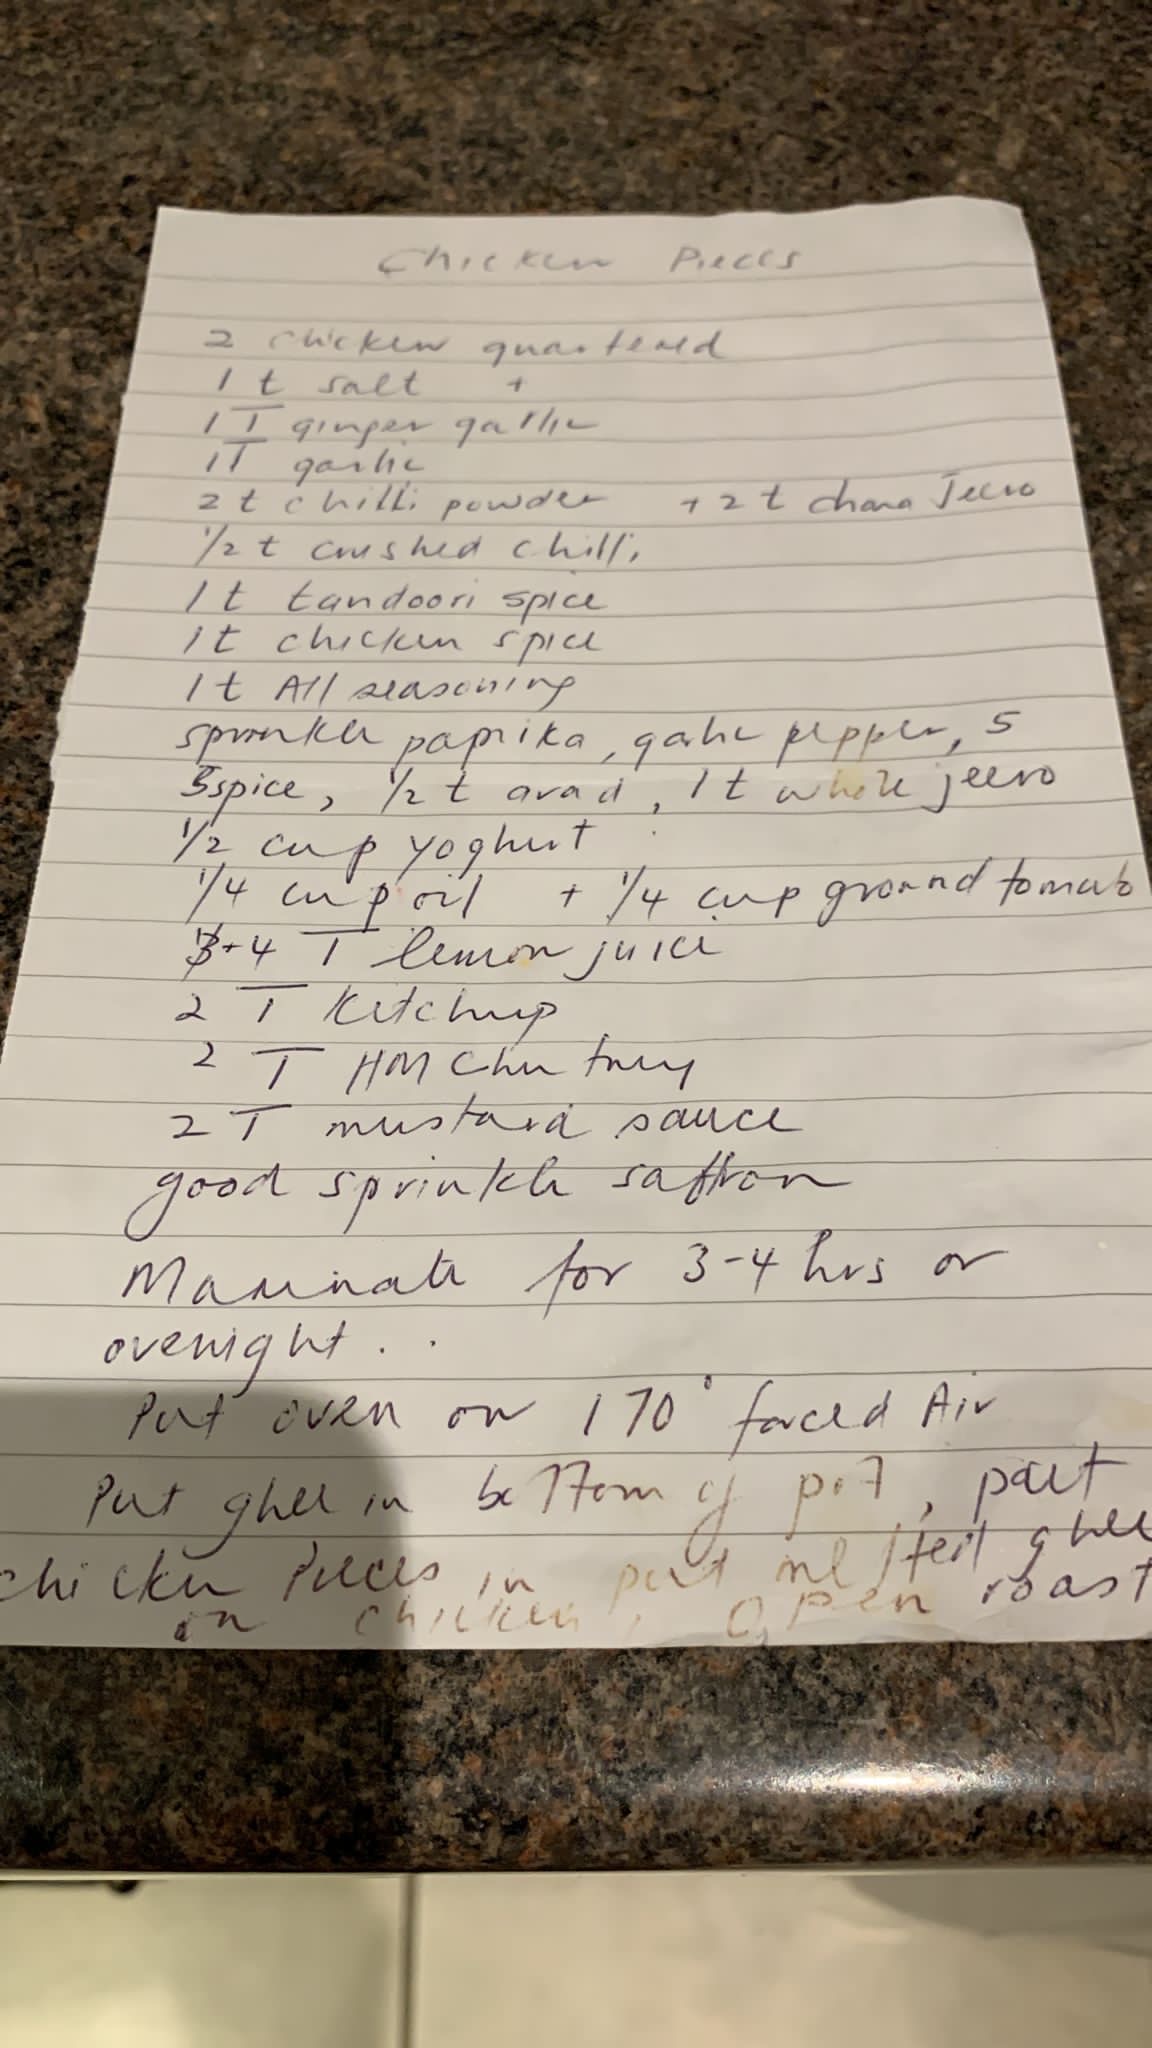 Chicken Pieces
2 chicken quartered
1 t salt +
1 T ginger garlic
1T garlic
2 t chilli powder + 2 t dhana Jeero
1/2 t crushed chilli
1 t tandoori spice
1 t chicken spice
1 t All seasoning
sprinkle paprika, garlic pepper, 5
5spice, 1/2 t arad, 1 t whole jeero
1/2 cup yoghurt
1/4 cup oil + 1/4 cup ground tomato
3-4 T lemon juice
2 T Ketchup
2 T HM Chutney
2 T mustard sauce
good sprinkle saffron
Marinate for 3-4 hrs or
overnight . .
Put oven on 170° forced Air
Put ghee in bottom of pot, put
chicken Pieces in put melted ghee
on chicken, Open roast